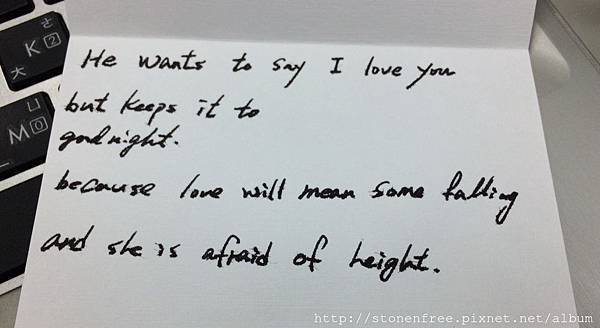 He wants to say I love you
but keeps it to
goodnight.
because love will mean some falling
and she is afraid of height.
K 2 ㄜ 大
M 0 ㄩ 一
http://stonenfree.pixnet.net/album